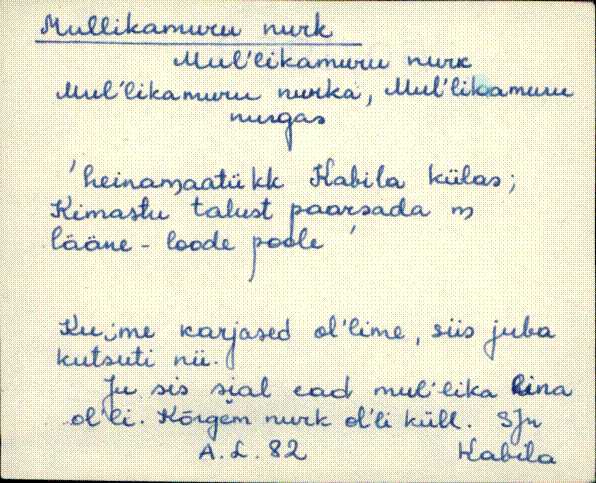 Mullikamuru nurk
Mul'likamuru nurk
Mul'likamuru nurka, Mul'likamuru
nurgas
'heinamaatükk Kabila külas;
Kimastu talust paarsada m
lääne-loode poole'
Ku me karjased ol'lime, siis juba
kutsuti nii.
Ju sis sial ead mul'lika
ol'li. Kõrgem nurk ol'li küll. SJn
A.L. 82 Kabila